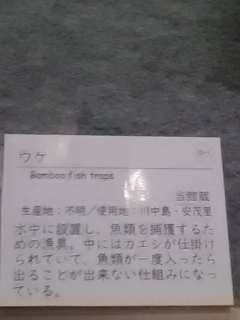 ウケ
Bamboo fish traps
当館蔵
生産地：不明／使用地：川中島・安茂里
水中に設置し、魚類を捕獲するた
めの漁具。中にはカエシが仕掛け
られていて、魚類が一度入ったら
出ることが出来ない仕組みになっ
ている。